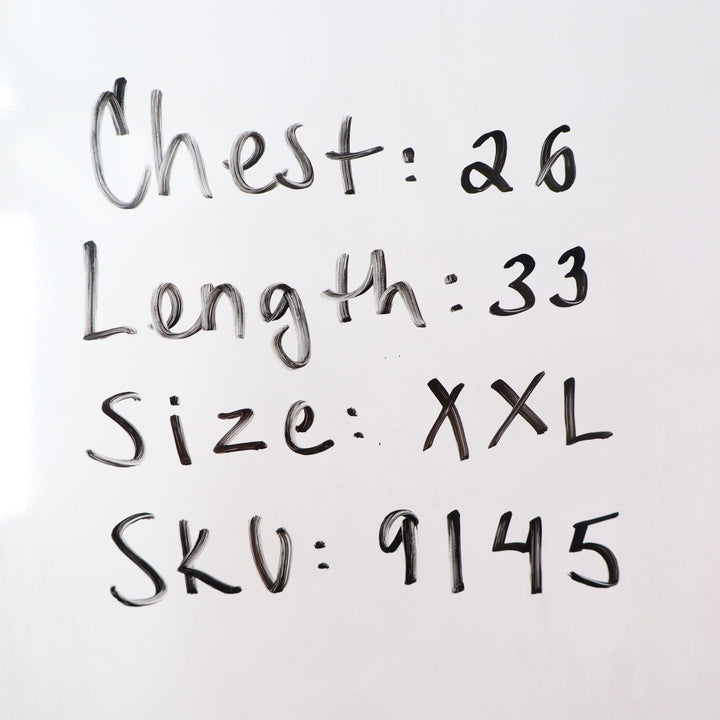 Chest: 26
Length: 33
Size: XXL
SKU: 9145